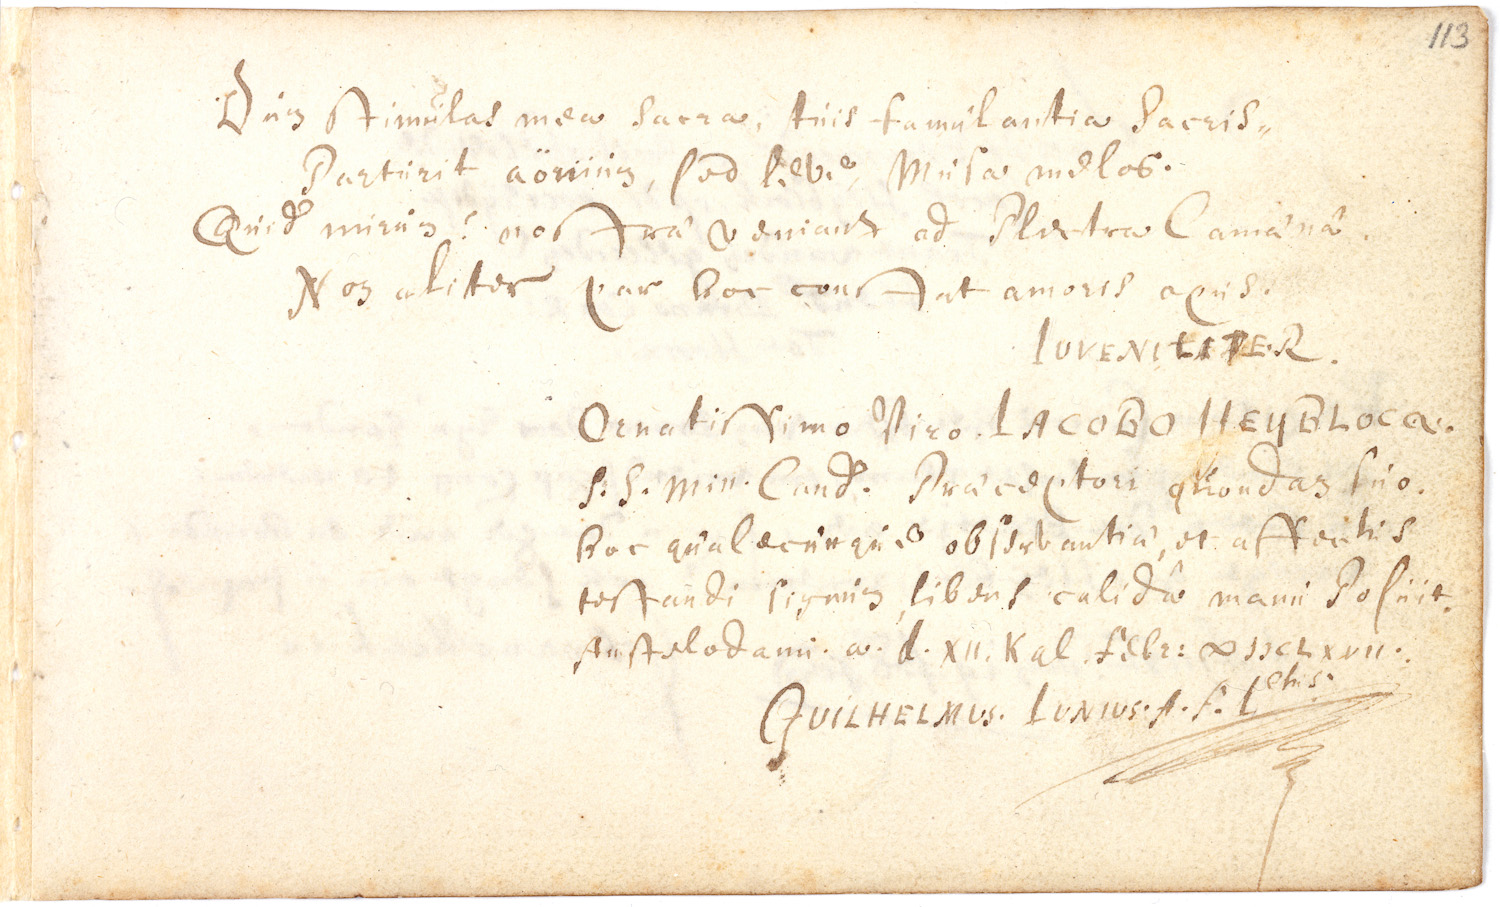 113
Dum stimulas mea sacra, tuis famulantia Sacris,,
Parturit aönium, sed leve, Musa melos.
Quid mirum? nostra veniant ad Plectra Camænâ.
Non aliter par hoc constat amoris opus.
IUVENILITER.
Ornatissimo Viro. IACOBO HEYBLOCQ.
S. S. Min. Cand. Præceptori quondam suo.
hoc qualecunque observantiæ, et affectus
testandi signum, libens calidâ manu Posuit.
Amstelodami. a. d. XII. Kal. febr:
GUILHELMUS. IUNIUS. A. F.